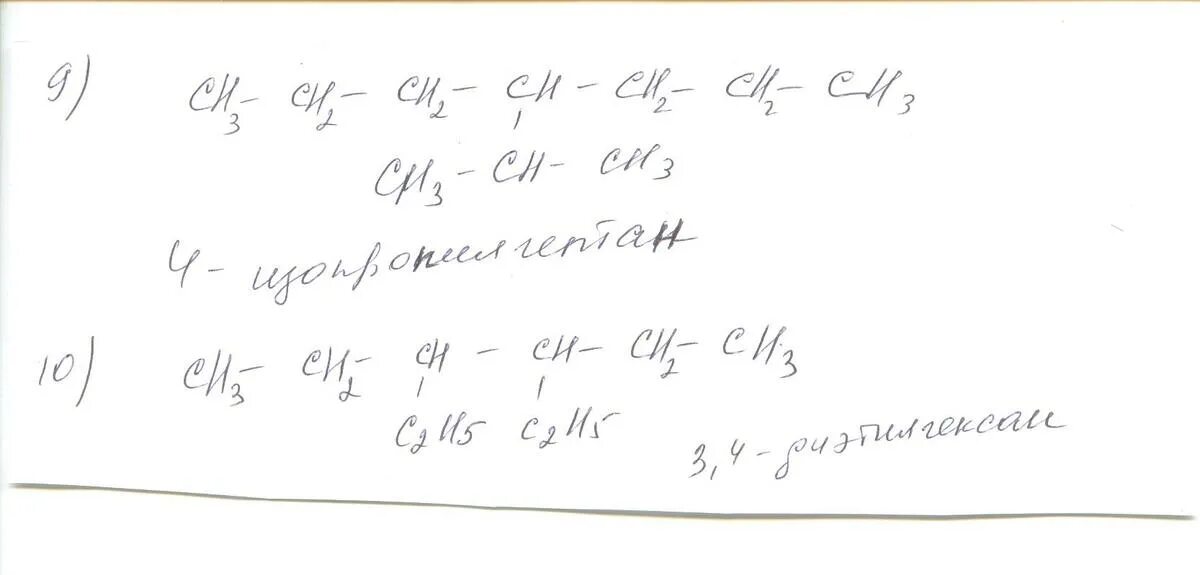 9) CH3 - CH2 - CH2 - CH - CH2 - CH2 - CH3
CH3 - CH - CH3
4 - изопропилгептан
10) CH3 - CH2 - CH - CH - CH2 - CH3
C2H5 C2H5
3,4 - диэтилгексан